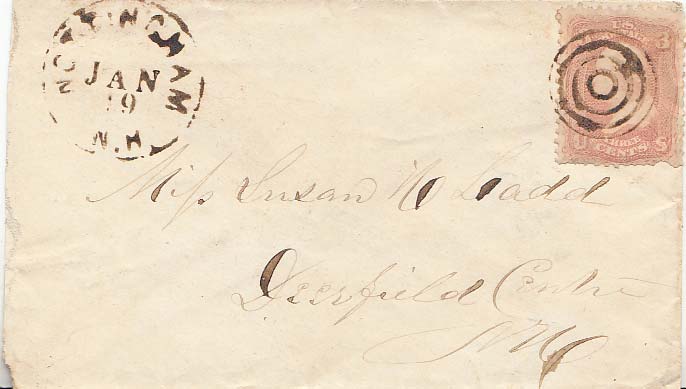 NOTTINGHAM
JAN
19
N.H.
3
THREE
U CENTS S
Miss Susan M Ladd
Deerfield Centre
NH